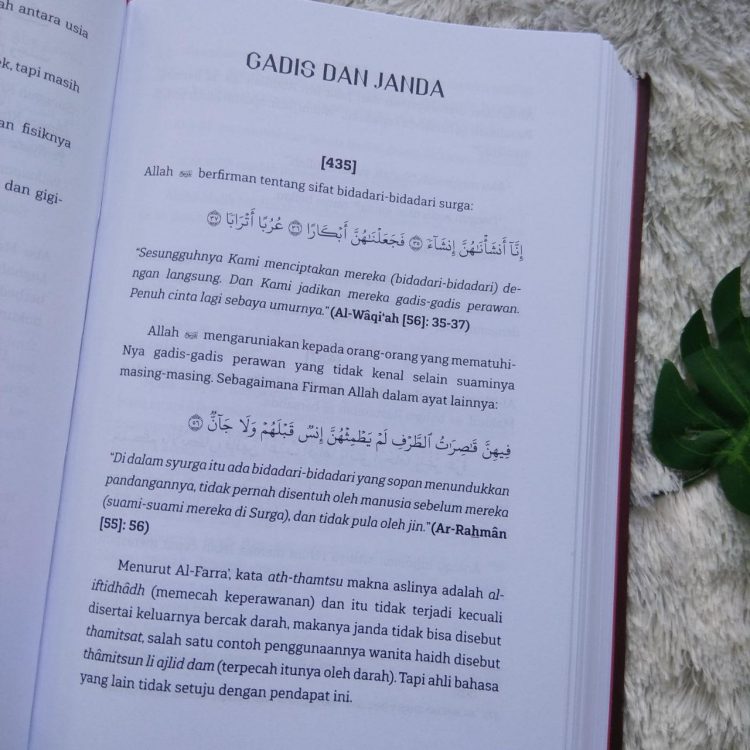 ah antara usia
k, tapi masih
an fisiknya
dan gigi-
GADIS DAN JANDA
[435]
Allah ﷻ berfirman tentang sifat bidadari-bidadari surga:
إِنَّآ أَنشَأْنَٰهُنَّ إِنشَآءً ٣٥ فَجَعَلْنَٰهُنَّ أَبْكَارًا ٣٦ عُرُبًا أَتْرَابًا ٣٧
"Sesungguhnya Kami menciptakan mereka (bidadari-bidadari) de-
ngan langsung. Dan Kami jadikan mereka gadis-gadis perawan.
Penuh cinta lagi sebaya umurnya." (Al-Wâqi'ah [56]: 35-37)
Allah ﷻ mengaruniakan kepada orang-orang yang mematuhi-
Nya gadis-gadis perawan yang tidak kenal selain suaminya
masing-masing. Sebagaimana Firman Allah dalam ayat lainnya:
فِيهِنَّ قَٰصِرَٰتُ ٱلطَّرْفِ لَمْ يَطْمِثْهُنَّ إِنسٌ قَبْلَهُمْ وَلَا جَآنٌّ ٥٦
"Di dalam syurga itu ada bidadari-bidadari yang sopan menundukkan
pandangannya, tidak pernah disentuh oleh manusia sebelum mereka
(suami-suami mereka di Surga), dan tidak pula oleh jin." (Ar-Rahmân
[55]: 56)
Menurut Al-Farra', kata ath-thamtsu makna aslinya adalah al-
iftidhâdh (memecah keperawanan) dan itu tidak terjadi kecuali
disertai keluarnya bercak darah, makanya janda tidak bisa disebut
thamitsat, salah satu contoh penggunaannya wanita haidh disebut
thâmitsun li ajlid dam (terpecah itunya oleh darah). Tapi ahli bahasa
yang lain tidak setuju dengan pendapat ini.